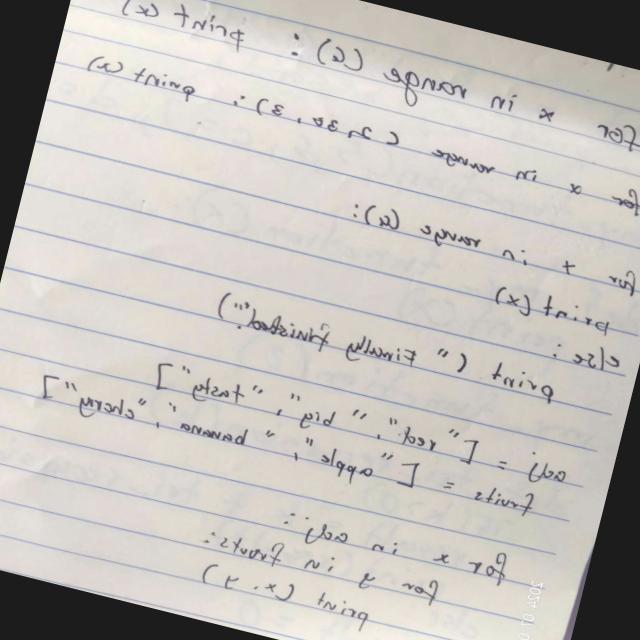 for x in range (6): print (x)
for x in range (2, 30, 3): print (x)
for x in range (6):
print (x)
else:
print ("Finally finished!")
adj = ["red", "big", "tasty"]
fruits = ["apple", "banana", "cherry"]
for x in adj:
for y in fruits:
print (x, y)